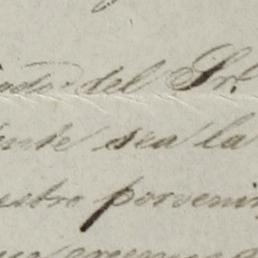 do del Sr.
ente sea la
uestro porvenir